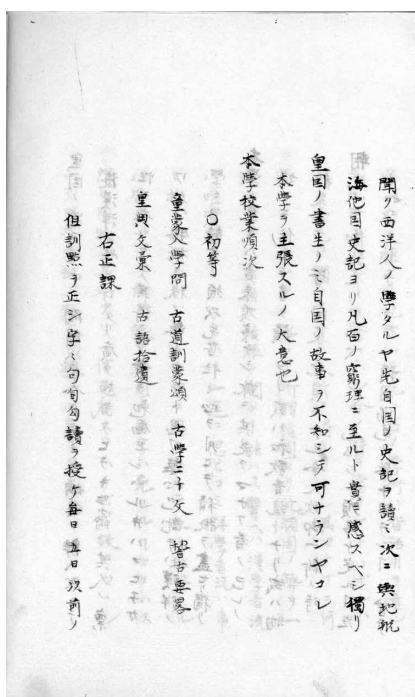 聞ク西洋人ノ學タルヤ先自国ノ史記ヲ讀ミ次ニ輿地航
海他国史記ヨリ凡百ノ窮理ニ至ルト實ニ感スベシ獨リ
皇国ノ書生ノミ自国ノ故事ヲ不知シテ可ナランヤコレ
本學ヲ主張スルノ大意也
本學授業順次
〇初等
童蒙入學問 古道訓蒙頌 古學二千文 稽古要畧
皇典文彙 古語拾遺
右正課
但訓點ヲ正シ字々句句勾讀ヲ授ク毎日五日以前ノ